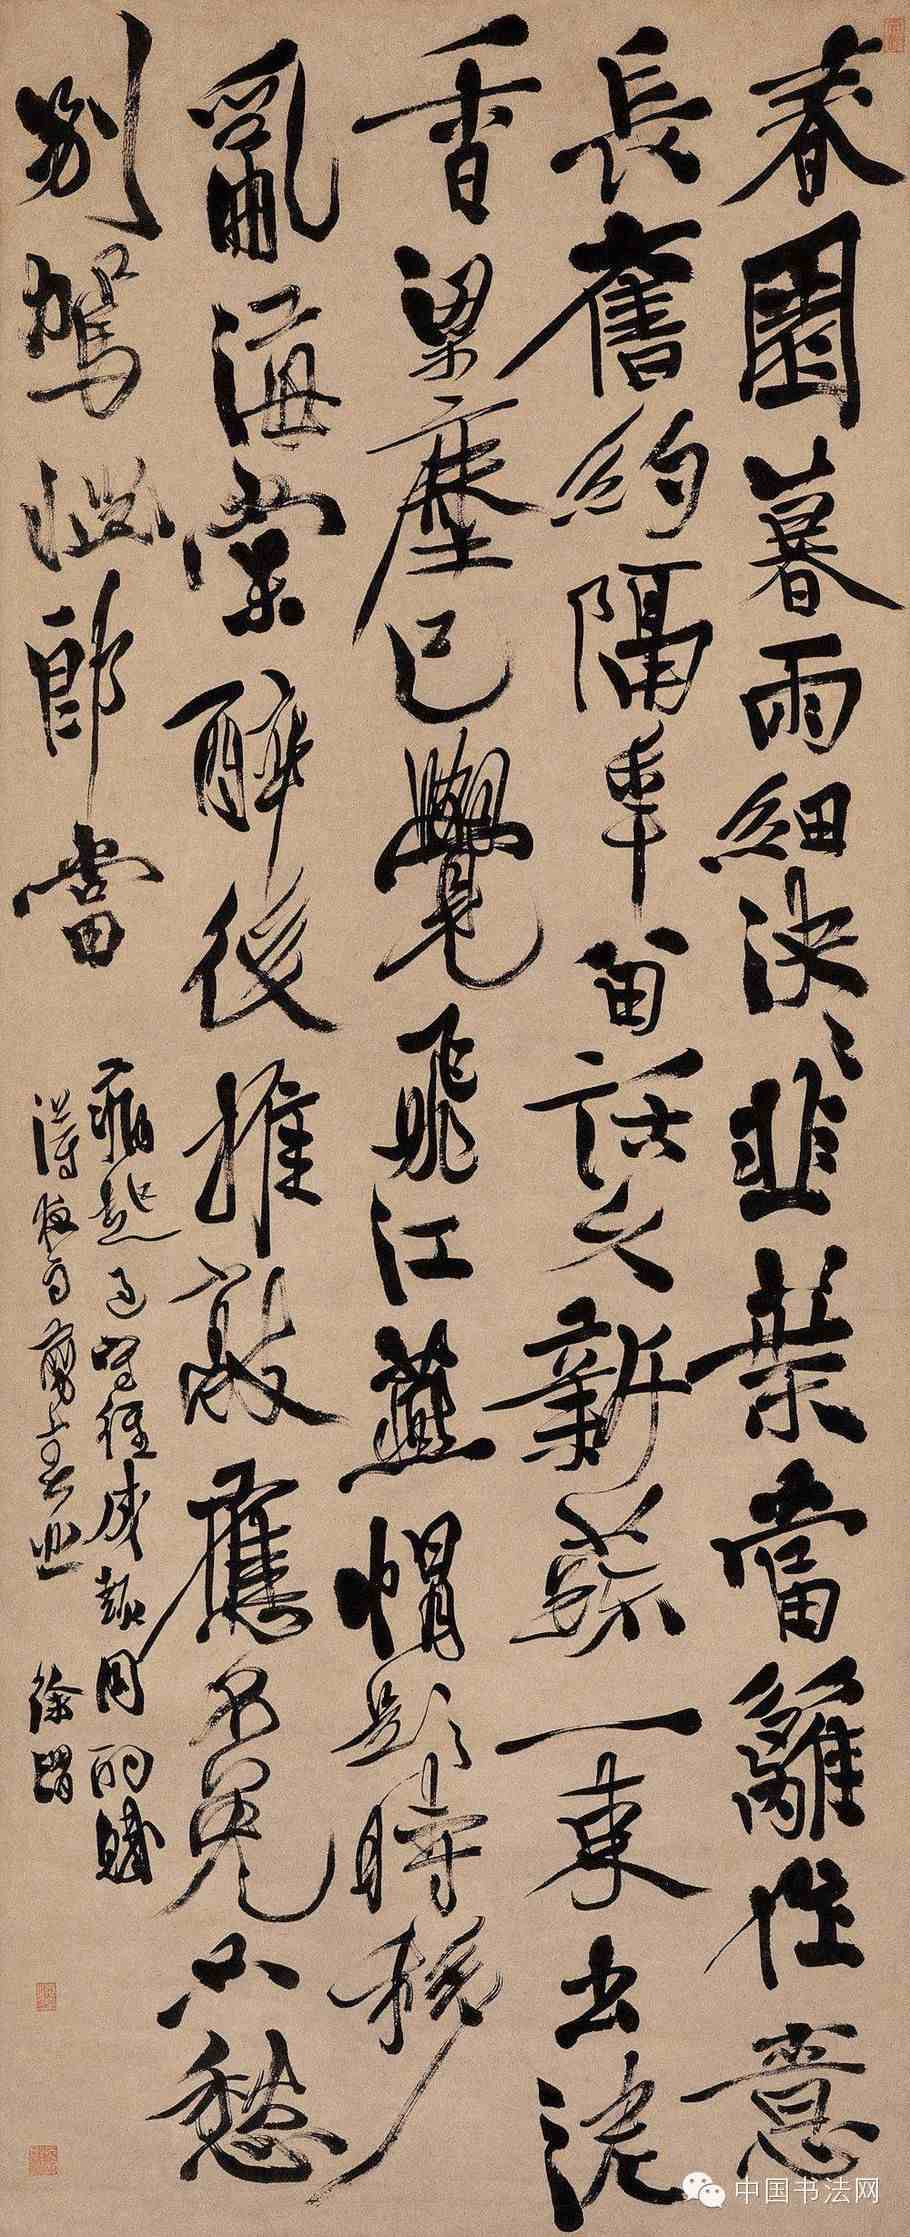 春園暮雨細泱〻韭葉當籬作意
長舊約隔年留話久新蔬一束出泥
香梁塵已覺飛江燕帽影時移
亂海棠醉後推敲應不免只愁
別駕惱郎當
病起過 賦
得夜雨剪春韭 徐渭
中国书法网